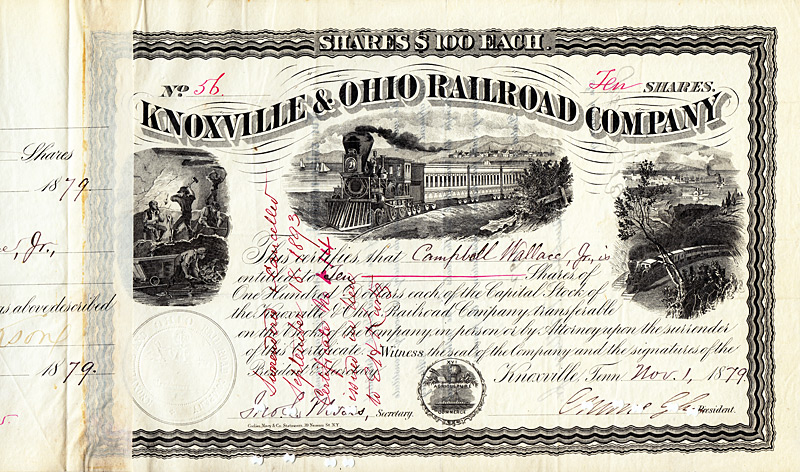 SHARES $100 EACH.
No 56.
Ten SHARES.
KNOXVILLE & OHIO RAILROAD COMPANY
Shares
1879
Jr.,
as above described
1879
This certifies that Campbell Wallace, Jr., is
entitled to Ten Shares of
One Hundred Dollars each, of the Capital Stock of
the Knoxville & Ohio Railroad Company, transferable
on the Books of the Company, in person or by Attorney upon the surrender
of this Certificate. Witness, the seal of the Company and the signatures of the
President & Secretary.
Knoxville, Tenn Nov. 1, 1879.
Secretary.
President.
Surrendered & Cancelled
September 18 1893
Certificate No
issued in lieu
to
AGRICULTURE
COMMERCE